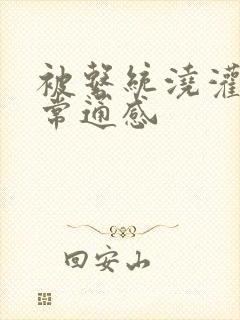 被系统浇灌
常通感
回安山